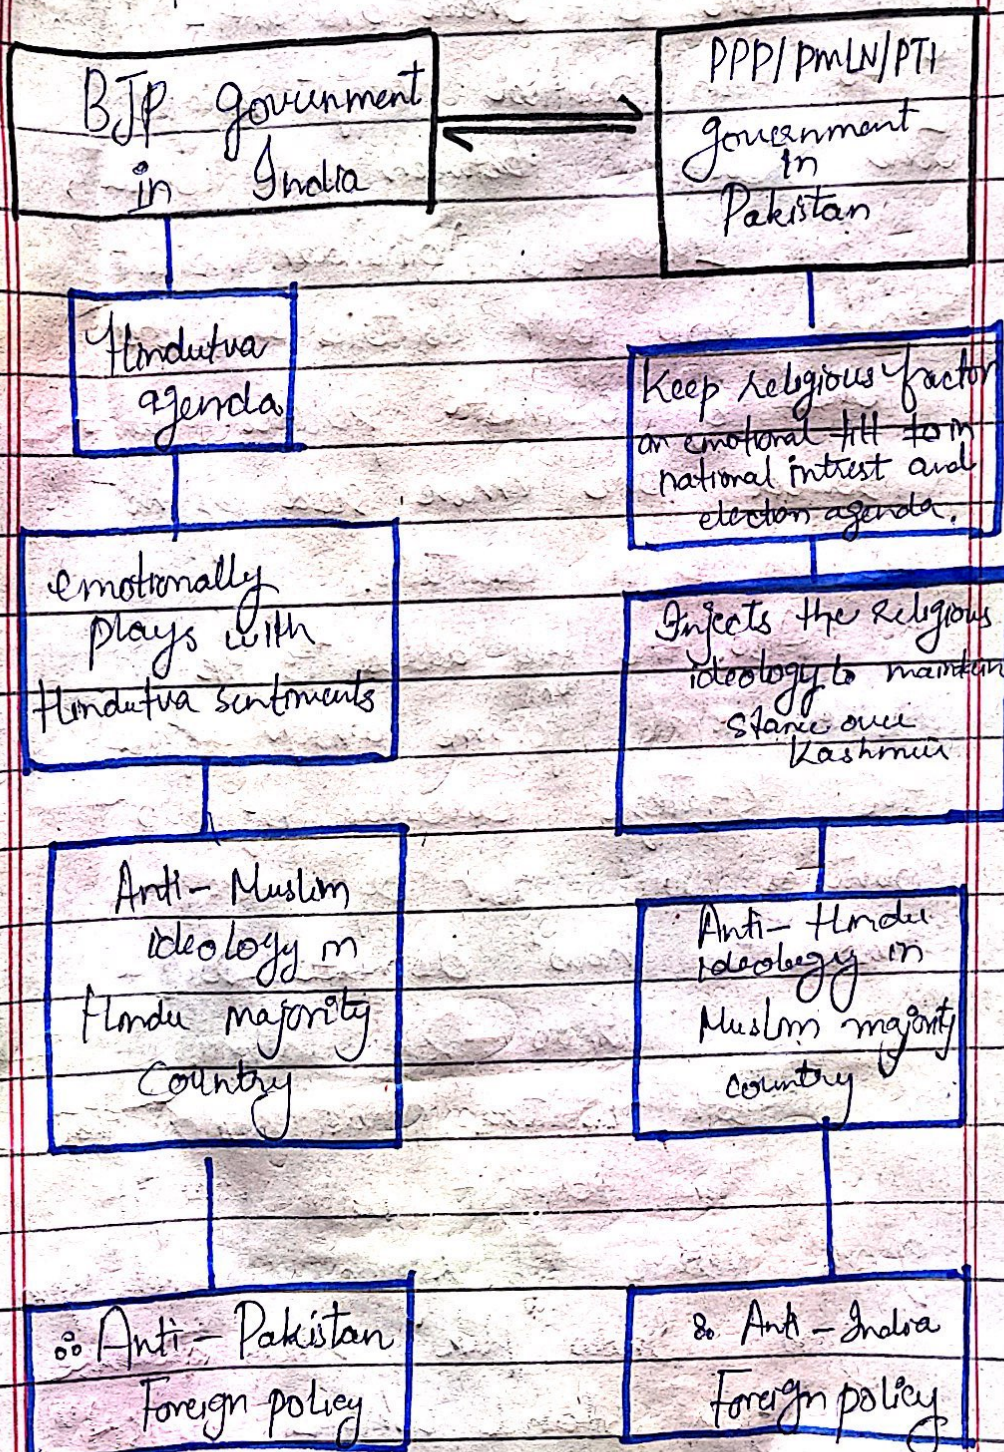 BJP government
in India
PPP/PMLN/PTI
government
in
Pakistan
Hindutva
agenda
emotionally
plays with
Hindutva sentiments
Anti-Muslim
ideology in
Hindu majority
Country
∴ Anti-Pakistan
Foreign policy
Keep religious factor
an emotional tilt to in
national intrest and
election agenda.
Injects the religious
ideology to maintain
stance over
Kashmir
Anti-Hindu
ideology in
Muslim majority
country
∴ Anti-India
Foreign policy